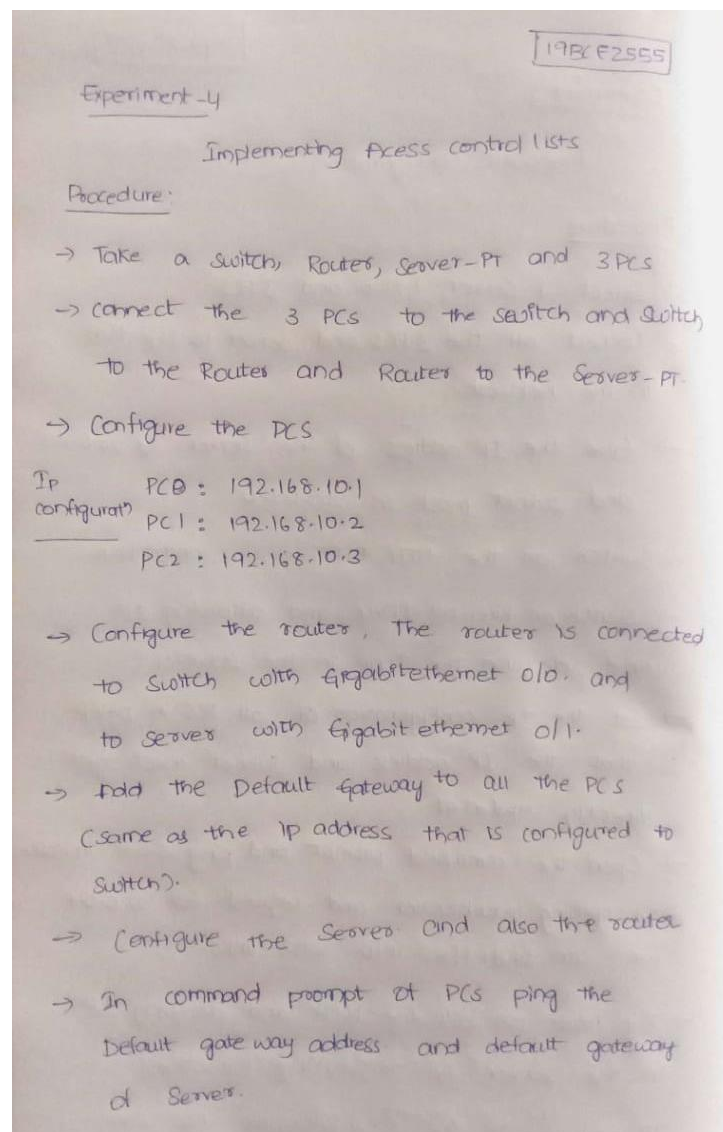 19BCE2555
Experiment-4
Implementing Acess control lists
Procedure:
→ Take a switch, Router, Server-PT and 3 PCs
→ connect the 3 PCs to the switch and switch
to the Router and Router to the Server-PT.
→ Configure the PCS
Ip
configuratn
PC0 : 192.168.10.1
PC1 : 192.168.10.2
PC2 : 192.168.10.3
→ Configure the router, The router is connected
to switch with Gigabitethernet 0/0. and
to server with Gigabit ethernet 0/1.
→ Add the Default Gateway to all the PCs
(same as the ip address that is configured to
switch).
→ Configure the Server and also the router
→ In command prompt of PCs ping the
Default gate way address and default gateway
of Server.